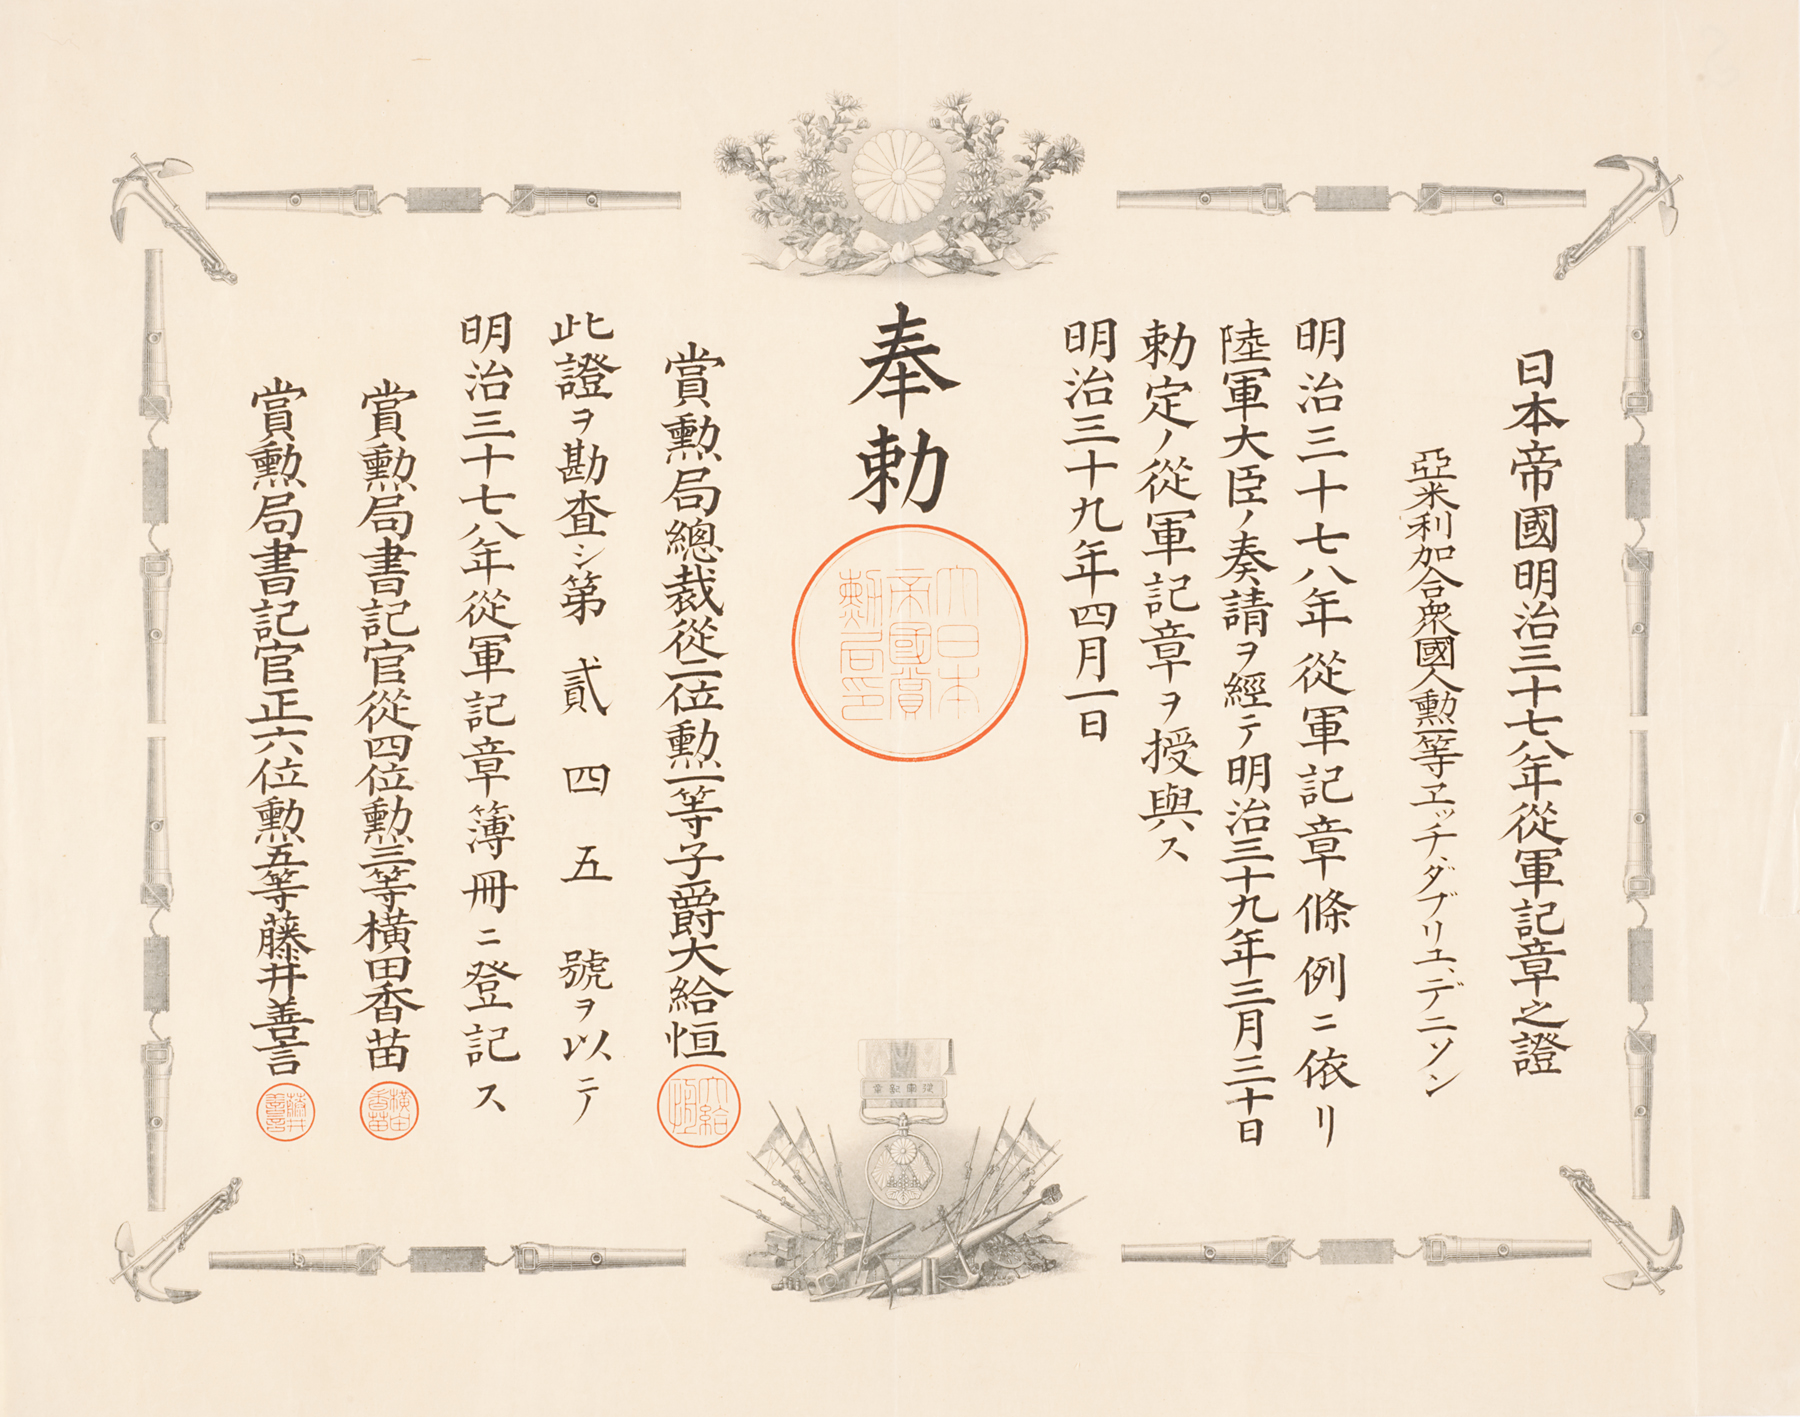 日本帝國明治三十七八年從軍記章之證
亞米利加合衆國人勲一等ヱッチ、ダブリユ、デニソン
明治三十七八年從軍記章條例ニ依リ
陸軍大臣ノ奏請ヲ經テ明治三十九年三月三十日
勅定ノ從軍記章ヲ授與ス
明治三十九年四月一日
奉勅
大日本
帝國賞
勲局印
賞勲局總裁從二位勲一等子爵大給恒
大給
恒
此證ヲ勘査シ第貳四五號ヲ以テ
明治三十七八年從軍記章簿冊ニ登記ス
賞勲局書記官從四位勲三等横田香苗
横田
香苗
賞勲局書記官正六位勲五等藤井善言
藤井
善言
從軍記章